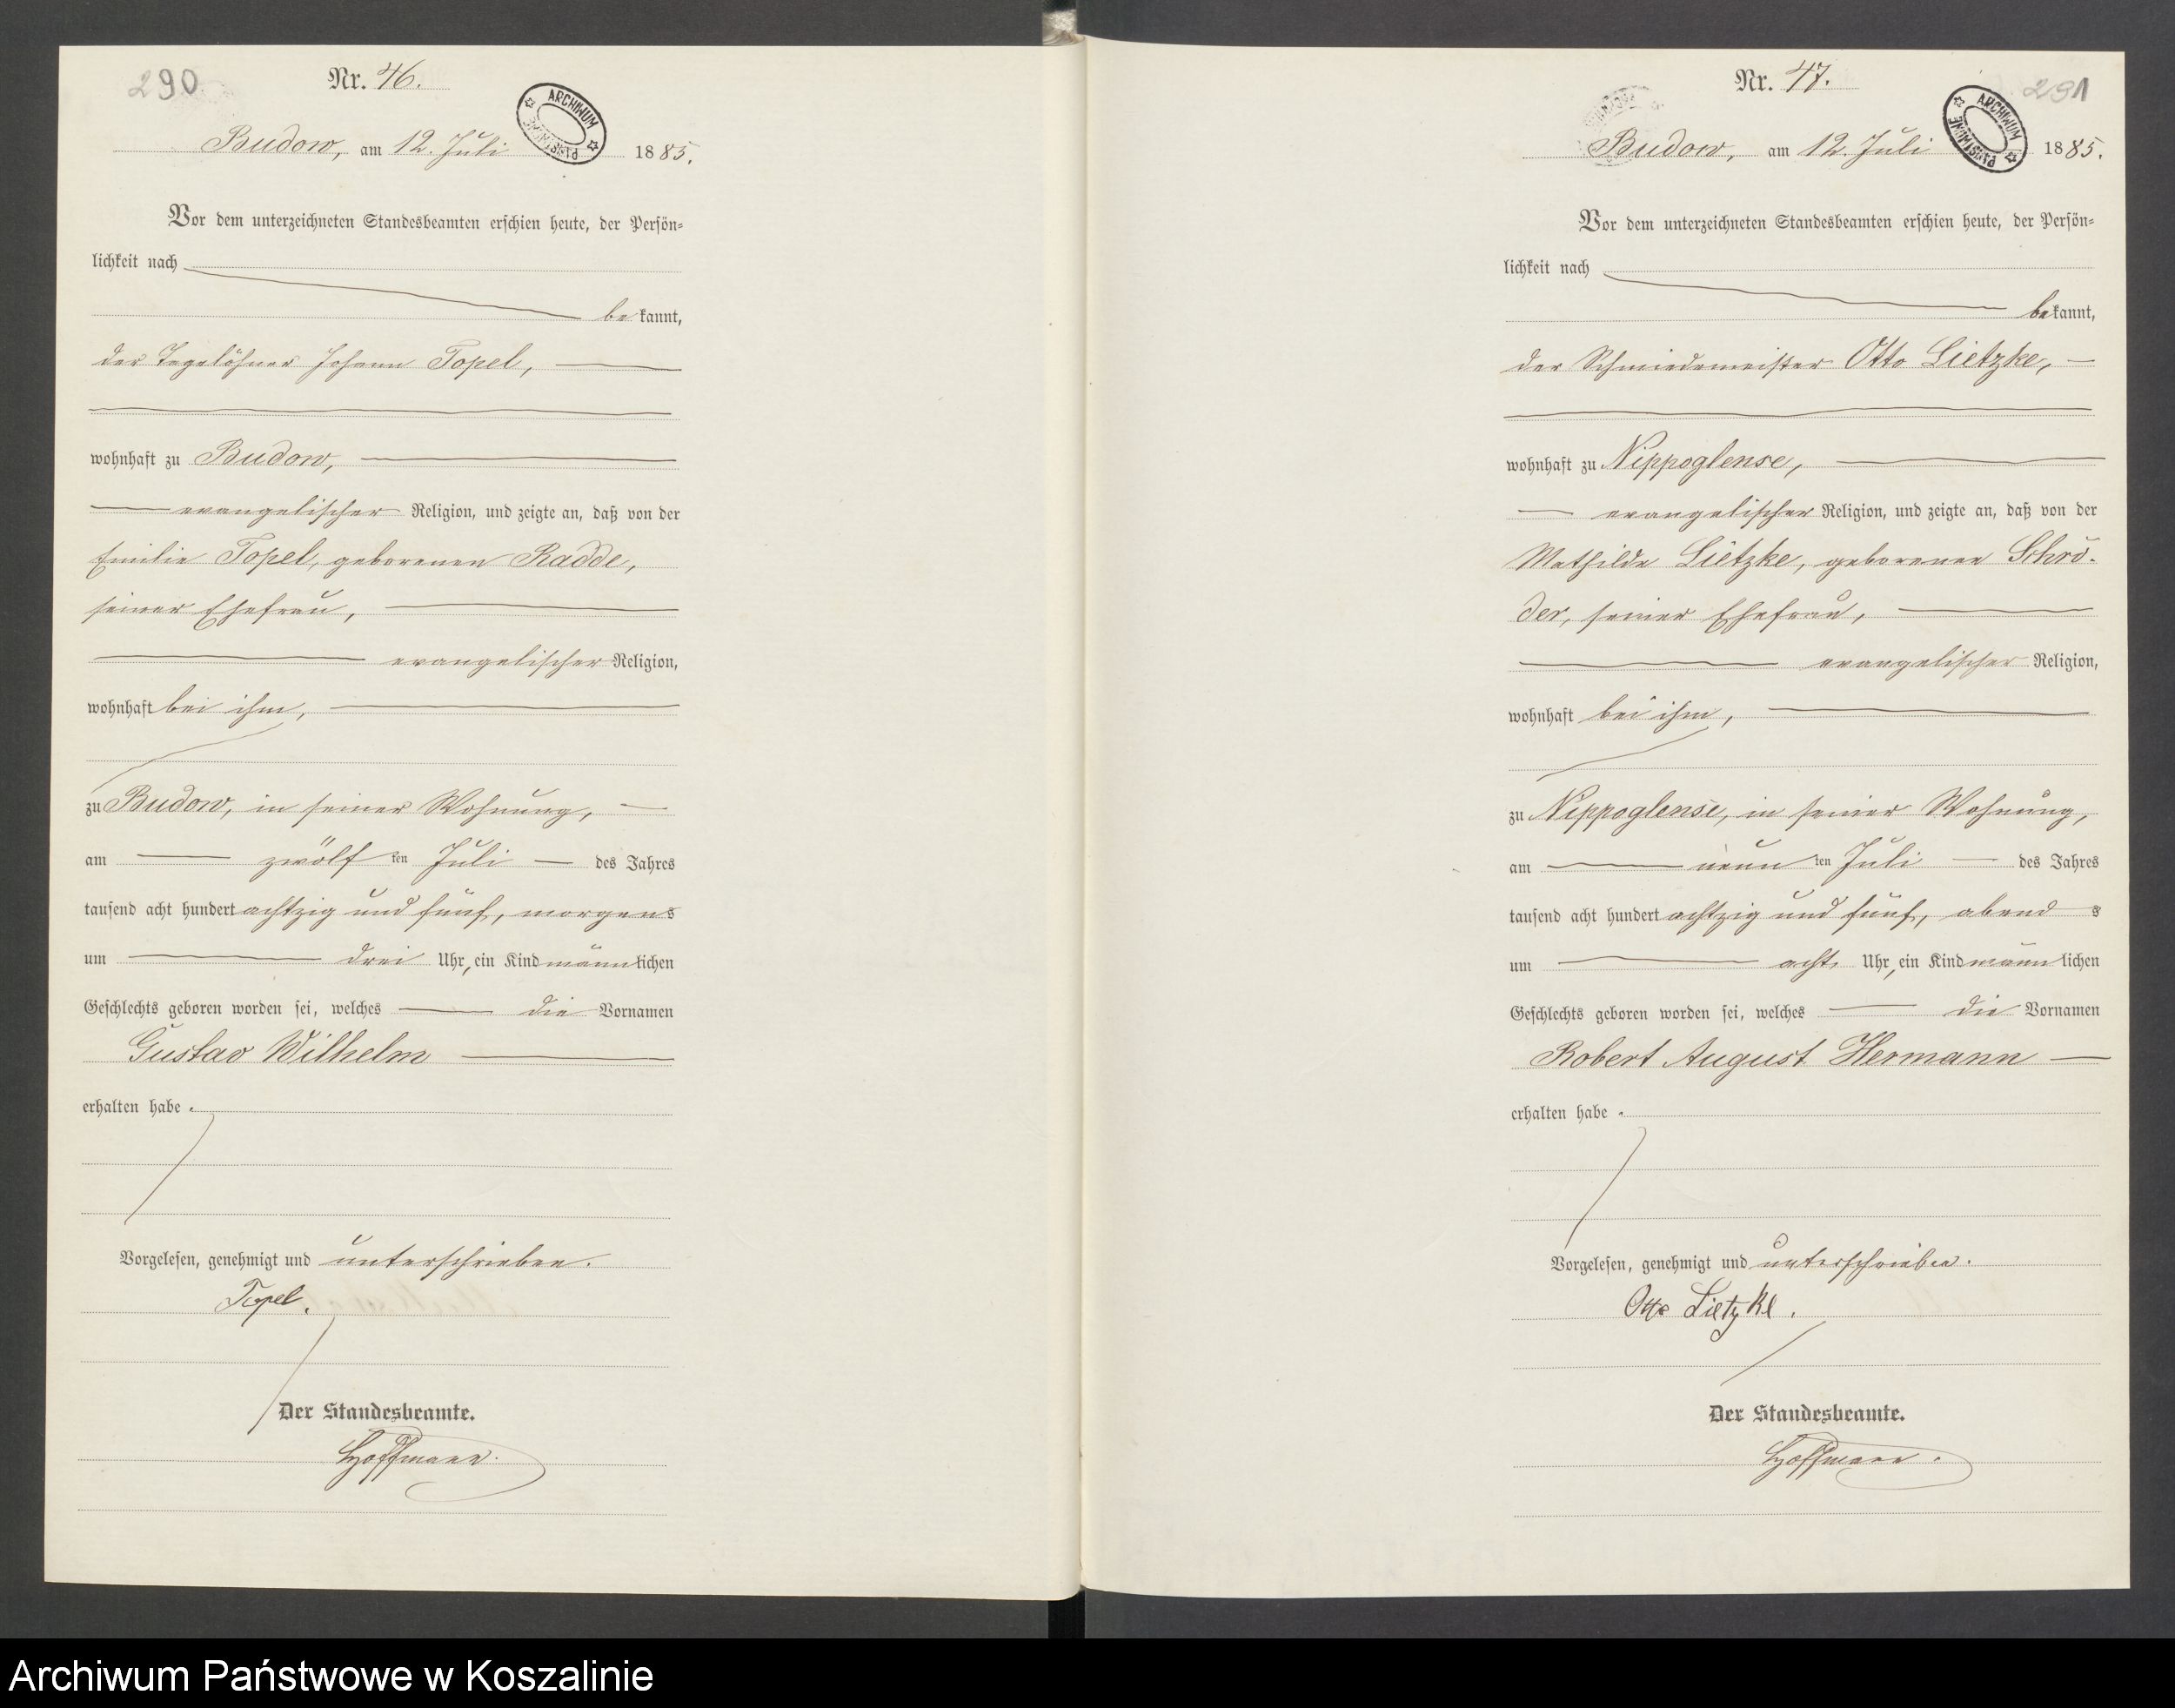 290
Nr. 46.
ARCHIWUM PAŃSTWOWE
Budow, am 12. Juli 1885.
Vor dem unterzeichneten Standesbeamten erschien heute, der Persön-
lichkeit nach
bekannt,
der Tagelöhner Johann Topel,
wohnhaft zu Budow,
evangelischer Religion, und zeigte an, daß von der
Emilie Topel, geborenen Radde,
seiner Ehefrau,
evangelischer Religion,
wohnhaft bei ihm,
zu Budow, in seiner Wohnung,
am zwölf ten Juli des Jahres
tausend acht hundert achtzig und fünf, morgens
um drei Uhr, ein Kind männlichen
Geschlechts geboren worden sei, welches die Vornamen
Gustav Wilhelm
erhalten habe.
Vorgelesen, genehmigt und unterschrieben.
Topel.
Der Standesbeamte.
Hoffmann.
Nr. 47.
291
ARCHIWUM PAŃSTWOWE
Budow, am 12. Juli 1885.
Vor dem unterzeichneten Standesbeamten erschien heute, der Persön-
lichkeit nach
bekannt,
der Schmiedemeister Otto Lietzke,
wohnhaft zu Nippoglense,
evangelischer Religion, und zeigte an, daß von der
Mathilde Lietzke, geborenen Schrö-
der, seiner Ehefrau,
evangelischer Religion,
wohnhaft bei ihm,
zu Nippoglense, in seiner Wohnung,
am neun ten Juli des Jahres
tausend acht hundert achtzig und fünf, abends
um acht Uhr, ein Kind männlichen
Geschlechts geboren worden sei, welches die Vornamen
Robert August Hermann
erhalten habe.
Vorgelesen, genehmigt und unterschrieben.
Otto Lietzke.
Der Standesbeamte.
Hoffmann.
Archiwum Państwowe w Koszalinie